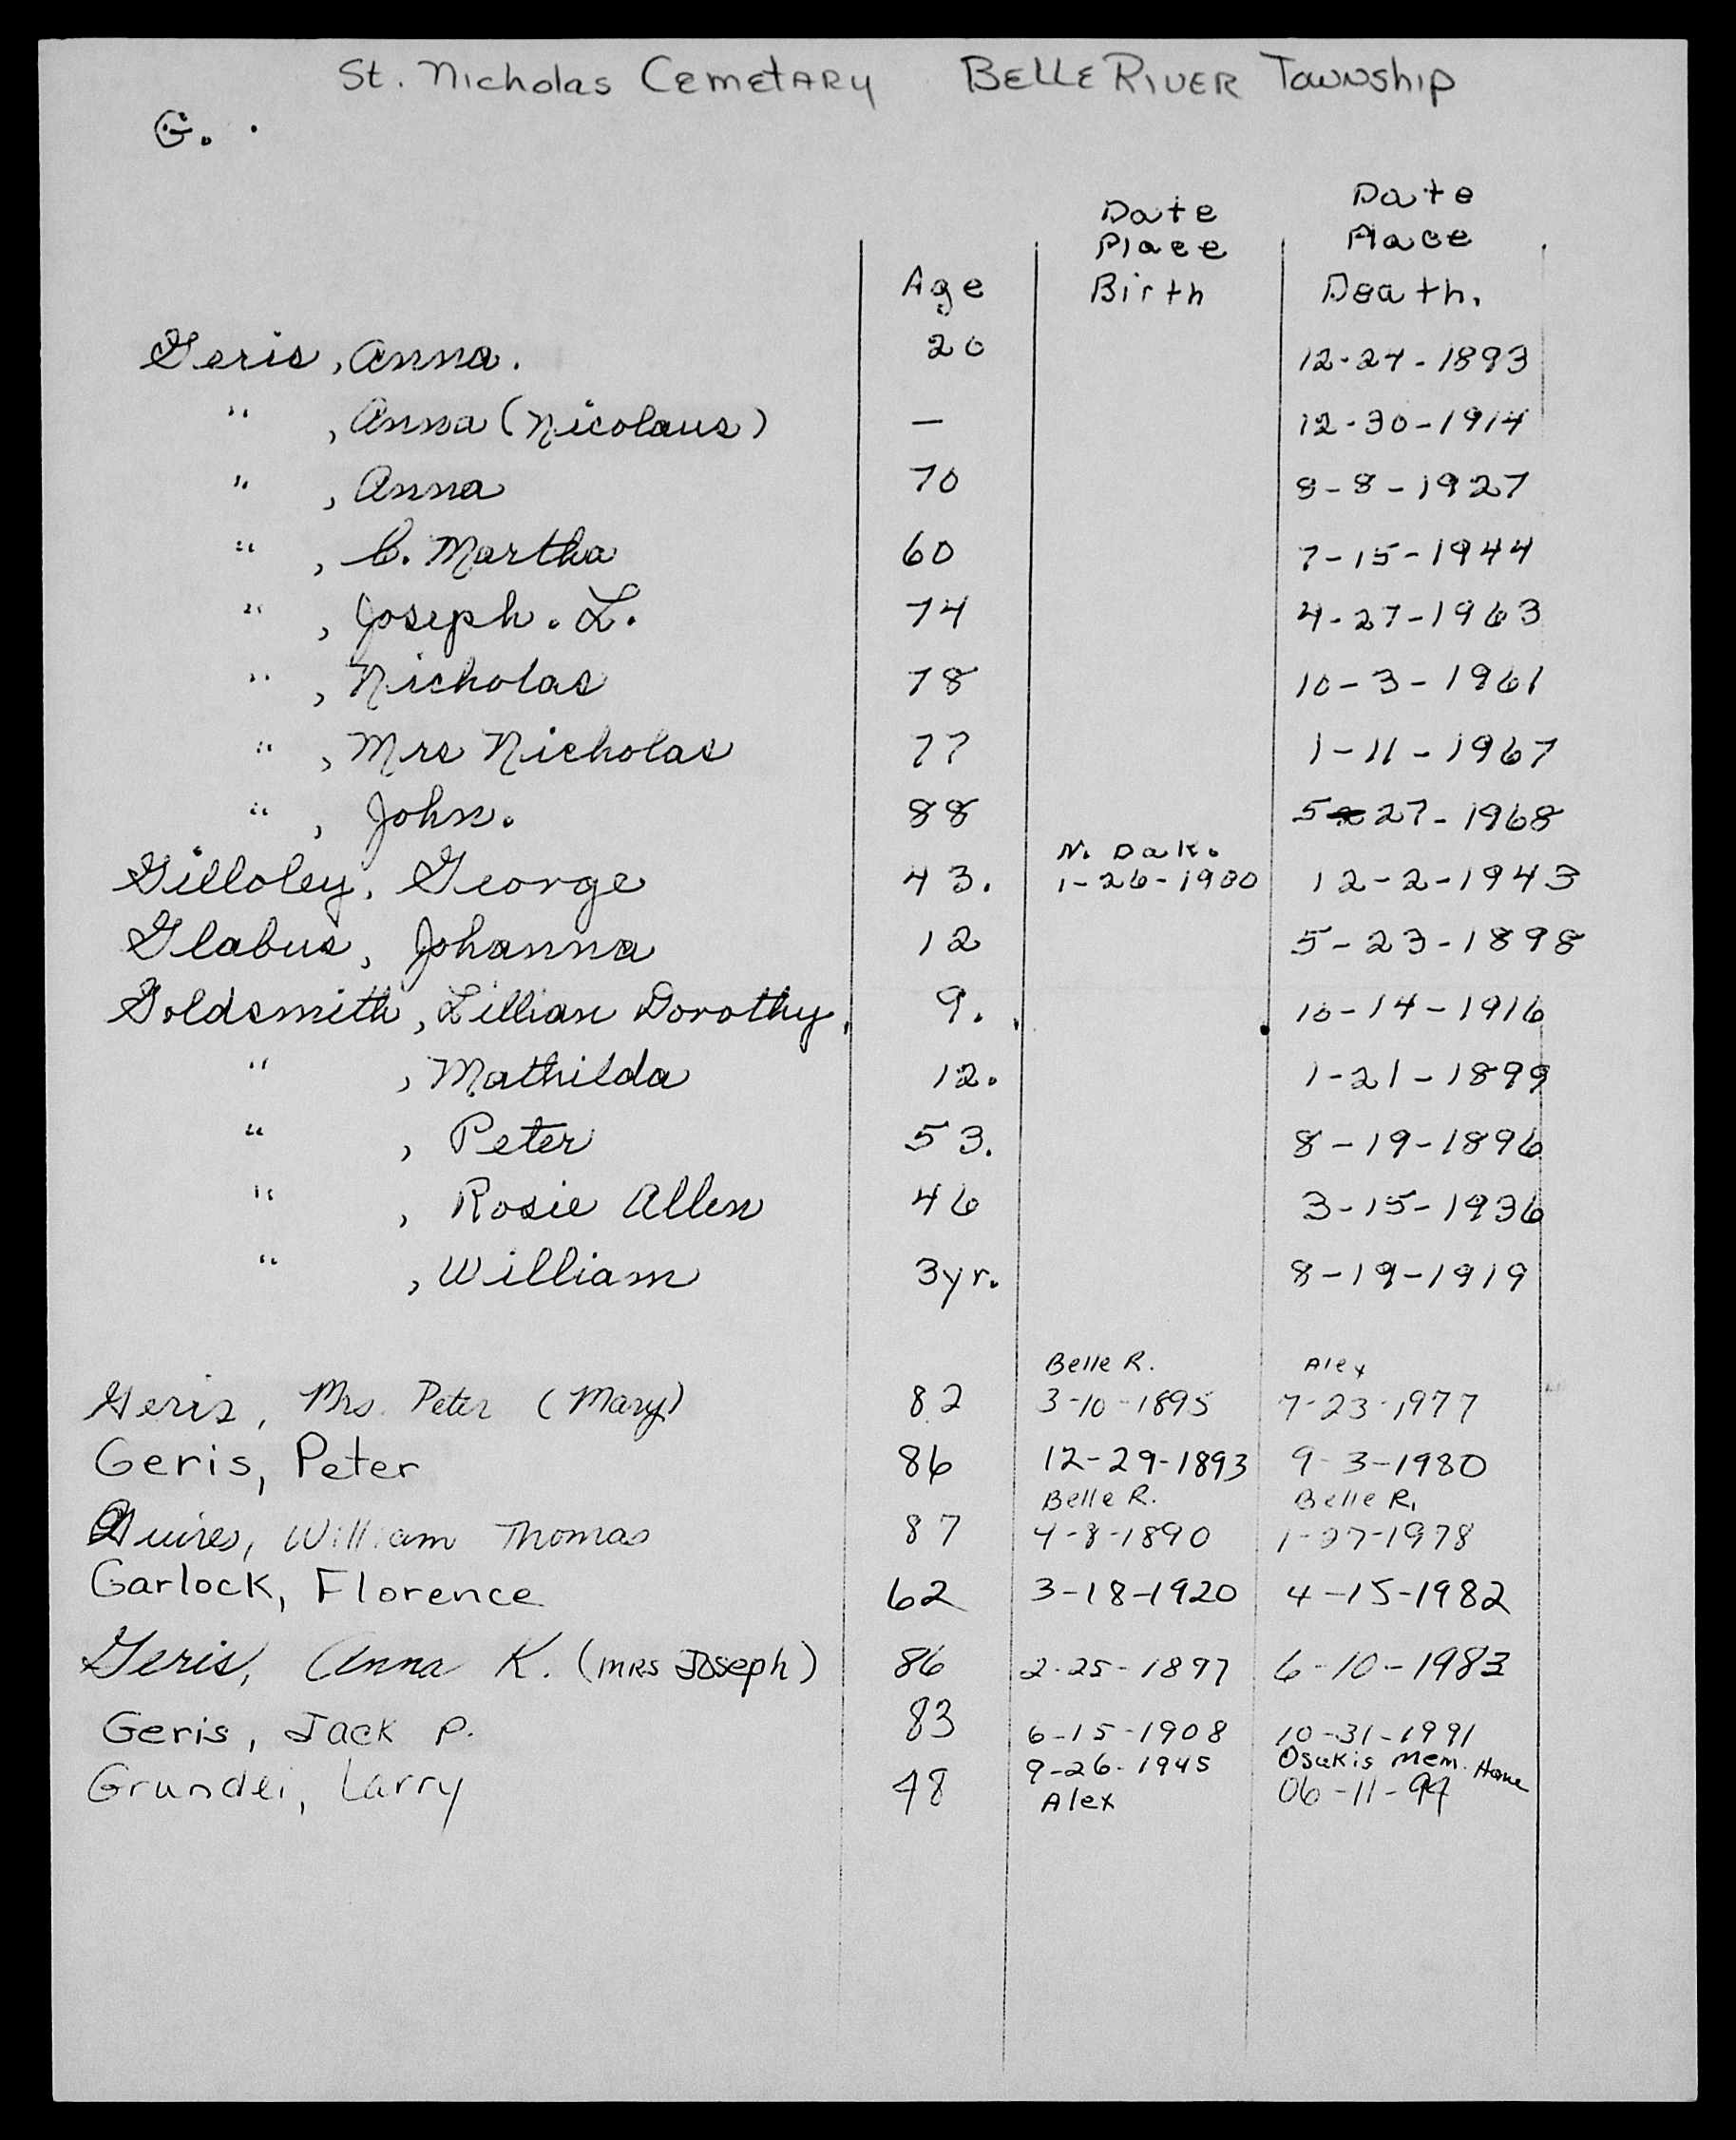 St. Nicholas Cemetary Belle River Township
G.
Date Place Birth
Date Place Death.
Age
Geris, Anna. 20 12-24-1893
" , Anna (Nicolaus) — 12-30-1914
" , Anna 70 8-8-1927
" , C. Martha 60 7-15-1944
" , Joseph. L. 74 4-27-1963
" , Nicholas 78 10-3-1961
" , Mrs Nicholas 77 1-11-1967
" , John. 88 5-27-1968
N. Dak.
Gilloley, George 43. 1-26-1900 12-2-1943
Glabus, Johanna 12 5-23-1898
Goldsmith, Lillian Dorothy. 9. 10-14-1916
" , Mathilda 12. 1-21-1899
" , Peter 53. 8-19-1896
" , Rosie Allen 46 3-15-1936
" , William 3yr. 8-19-1919
Belle R. Alex
Geris, Mrs. Peter (Mary) 82 3-10-1895 7-23-1977
Geris, Peter 86 12-29-1893 9-3-1980
Belle R. Belle R.
William Thomas 87 4-8-1890 1-27-1978
Garlock, Florence 62 3-18-1920 4-15-1982
Geris, Anna K. (Mrs Joseph) 86 2-25-1897 6-10-1983
Geris, Jack P. 83 6-15-1908 10-31-1991
9-26-1945 Osakis Mem. Home
Grundei, Larry 48 Alex 06-11-94